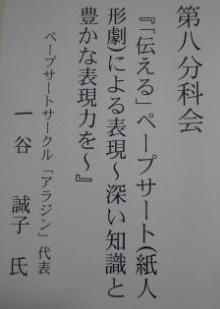 第八分科会
『「伝える」ペープサート(紙人
形劇)による表現～深い知識と
豊かな表現力を～』
ペープサートサークル「アラジン」代表
一谷　誠子　氏